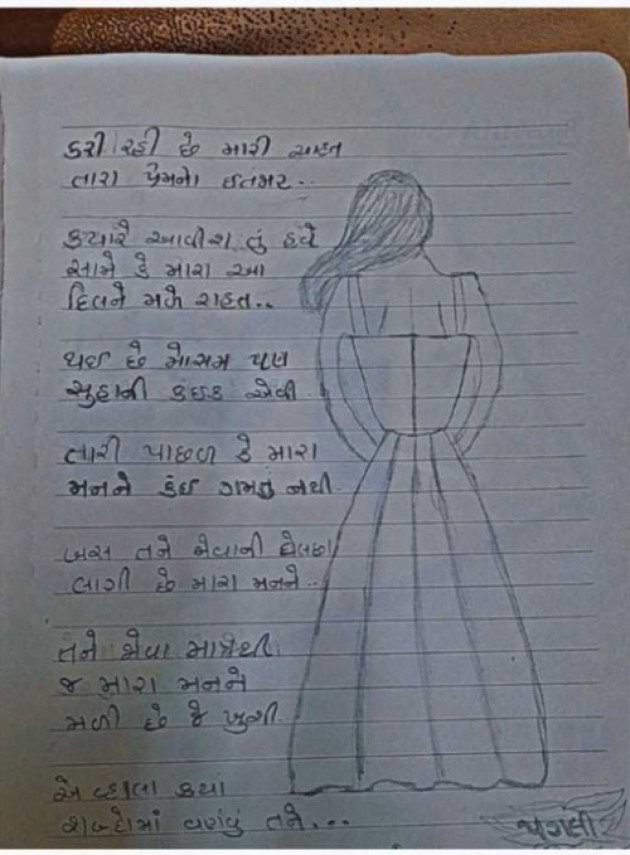 કરી રહી છે મારી ચાહત
તારા પ્રેમનો ઈતબાર..
ક્યારે આવીશ તું હવે
સામે કે મારા આ
દિલને મળે રાહત..
થઈ છે મોસમ પણ
સુહાની કંઈક એવી
તારી પાછળ કે મારા
મનને કંઈ ગમતું નથી
બસ તને જોવાની ઘેલછા
લાગી છે મારા મનને..
તને જોવા માત્રથી
જ મારા મનને
મળી છે જે ખુશી
એ વ્હાલા ક્યાં
શબ્દોમાં વર્ણવું તને...
પગલી